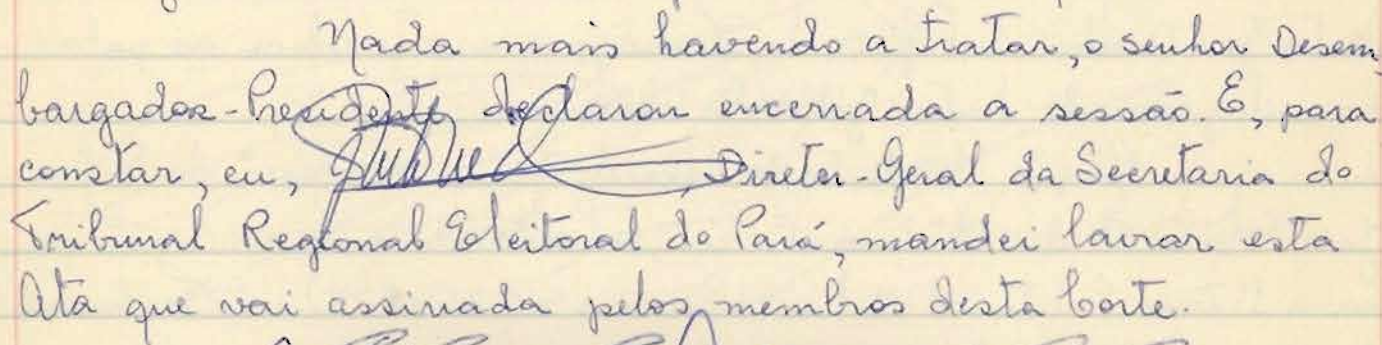 Nada mais havendo a tratar, o senhor Desem
bargador-Presidente declarou encerrada a sessão. E, para
constar, eu, , Diretor-Geral da Secretaria do
Tribunal Regional Eleitoral do Pará, mandei lavrar esta
Ata que vai assinada pelos membros desta Corte.